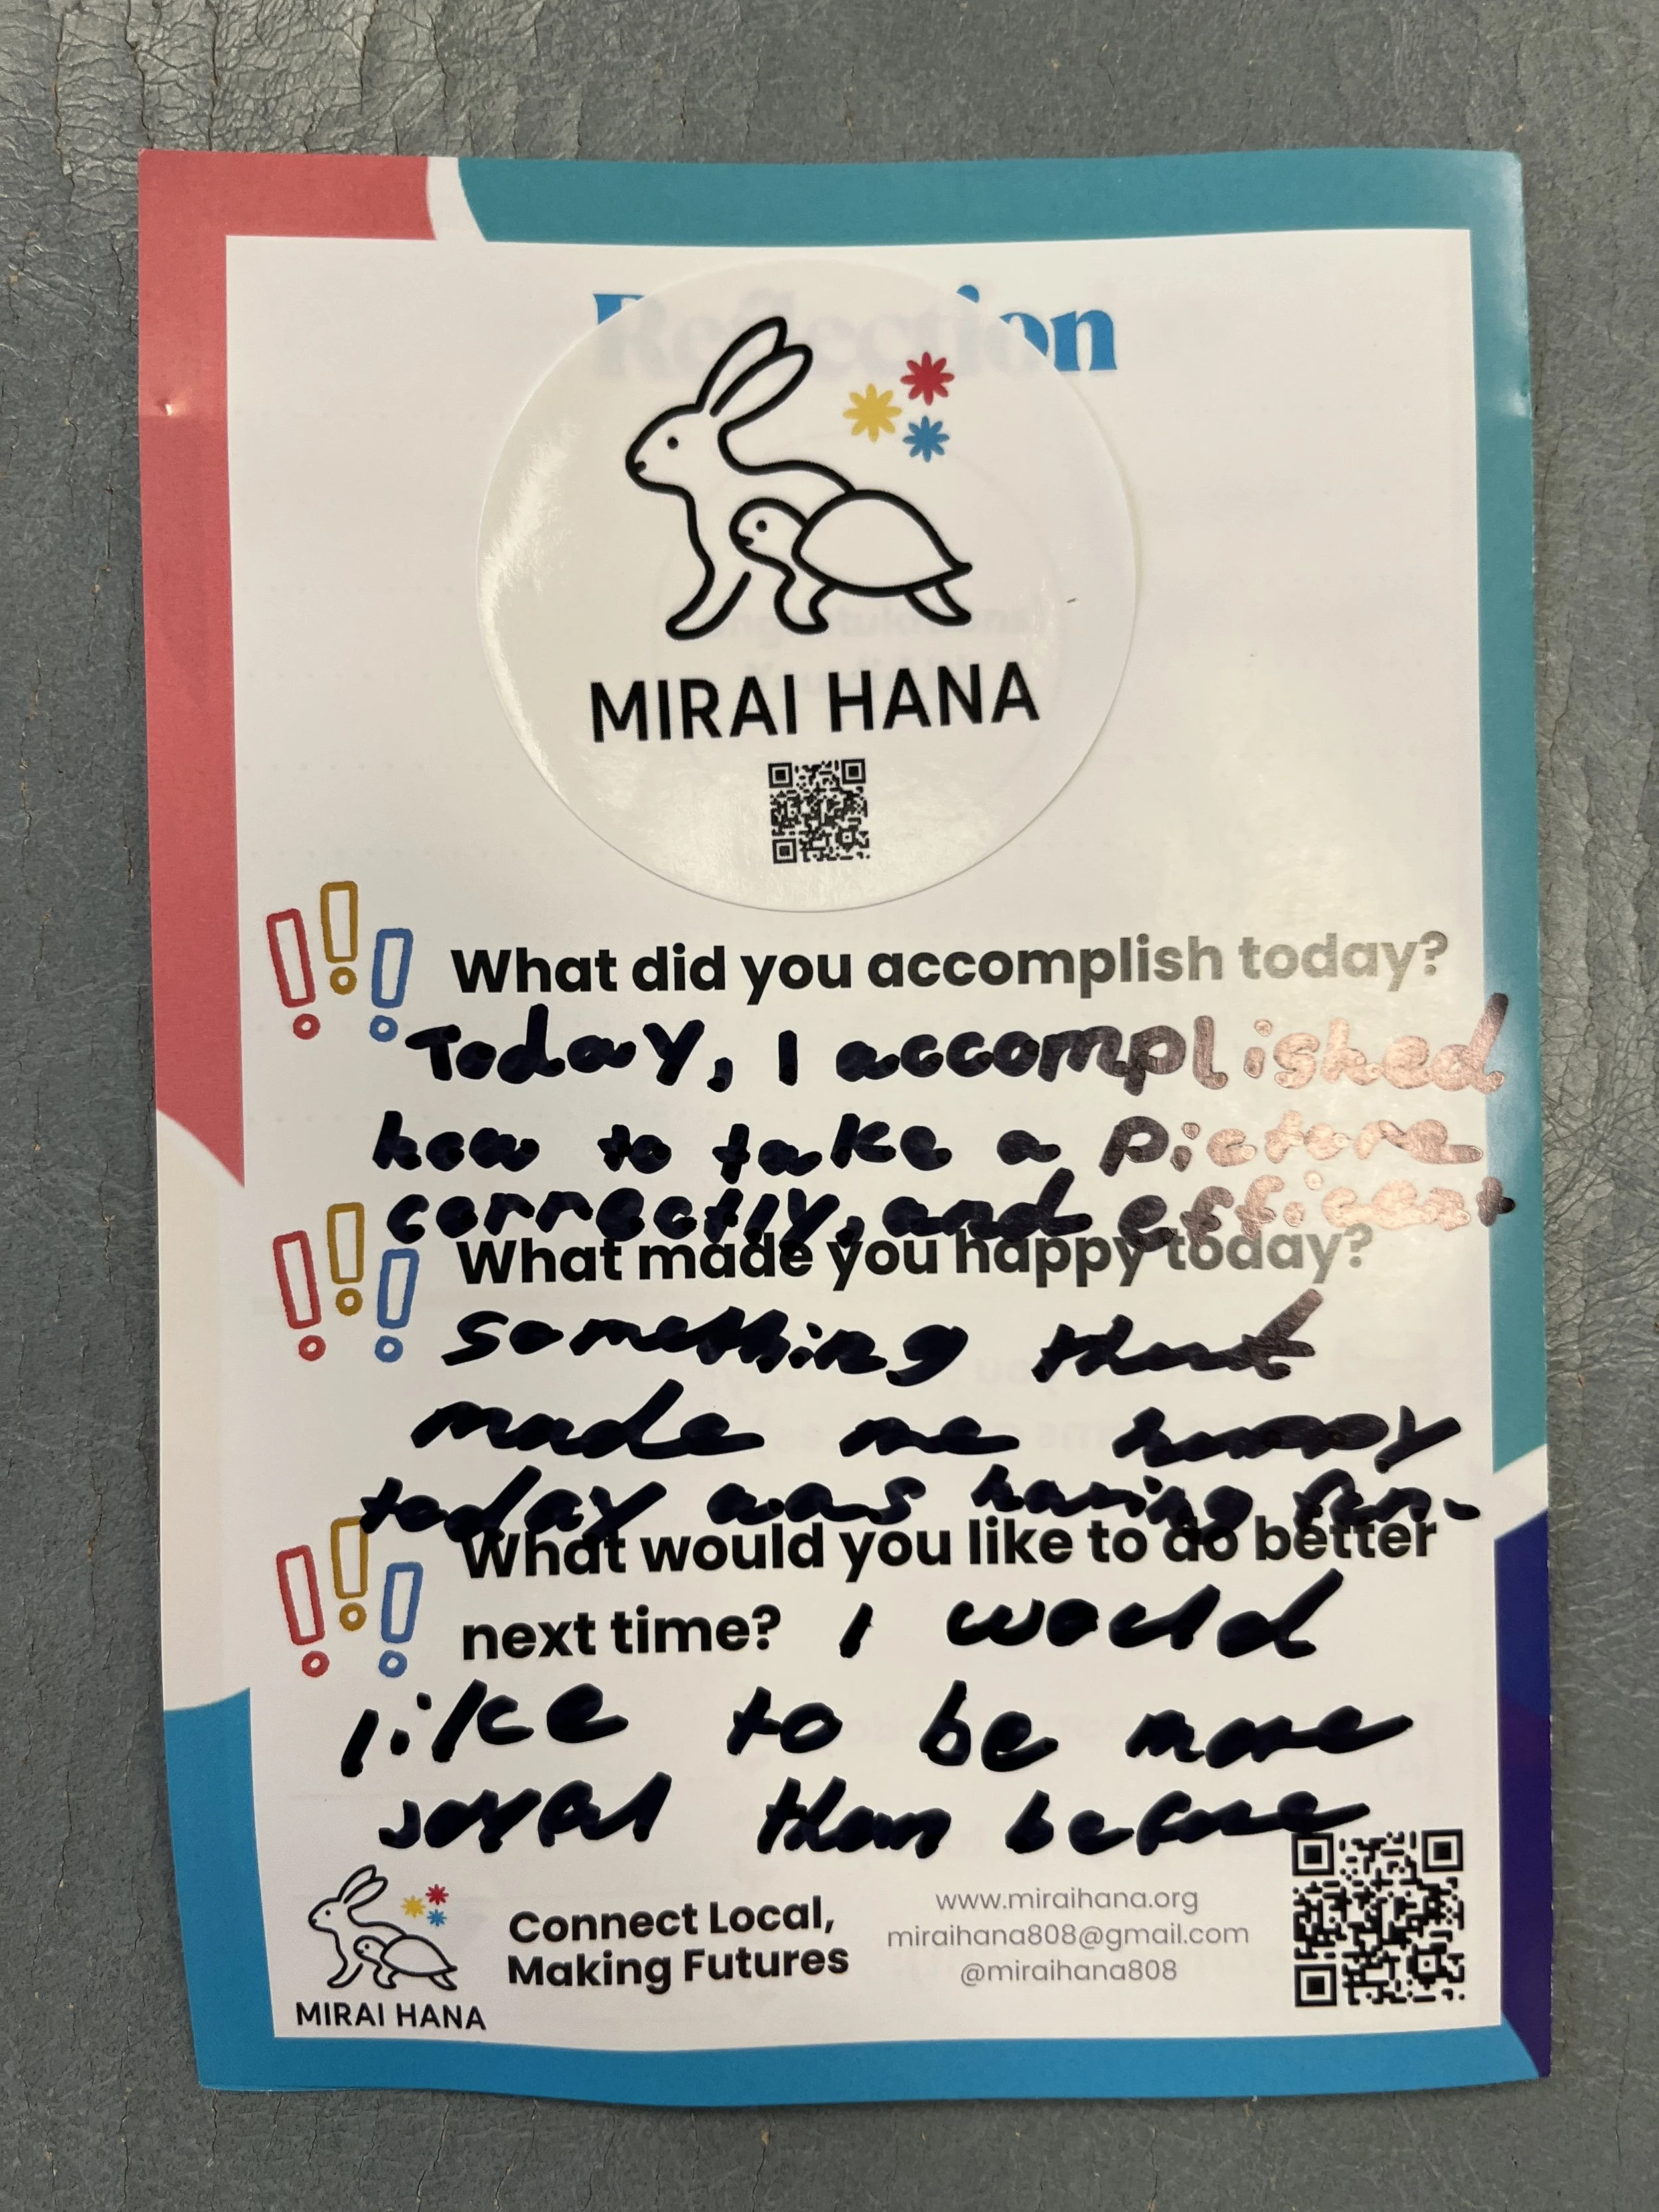 Reflection
MIRAI HANA
What did you accomplish today?
Today, I accomplished
how to take a picture
correctly, and efficient
What made you happy today?
Something that
made me happy
today was having fun.
What would you like to do better
next time? I would
like to be more
than before
Connect Local,
Making Futures
www.miraihana.org
miraihana808@gmail.com
@miraihana808
MIRAI HANA